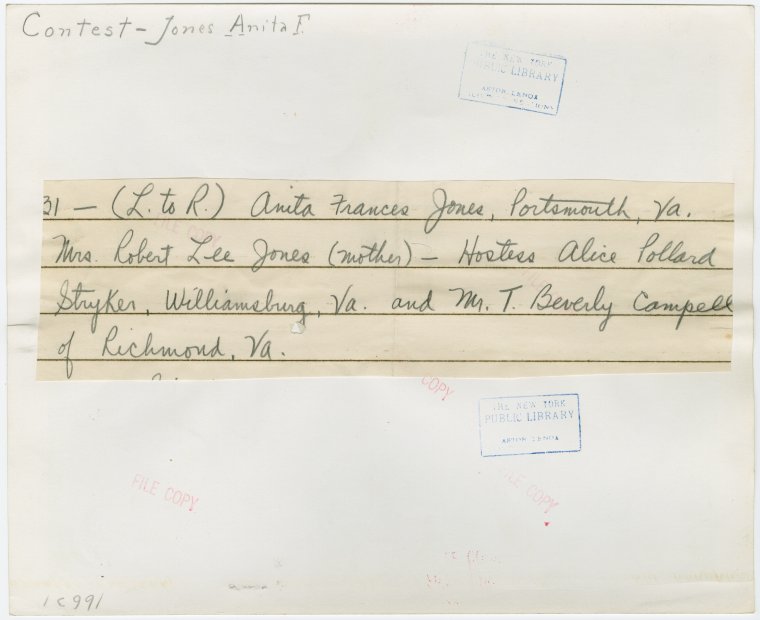 Contest - Jones Anita F.
THE NEW YORK
PUBLIC LIBRARY
ASTOR, LENOX
31 - (L. to R.) Anita Frances Jones, Portsmouth, Va.
FILE COPY
Mrs. Robert Lee Jones (mother) - Hostess Alice Pollard
Stryker, Williamsburg, Va. and Mr. T. Beverly Campell
of Richmond, Va.
COPY
THE NEW YORK
PUBLIC LIBRARY
ASTOR LENOX
FILE COPY
FILE COPY
1c991